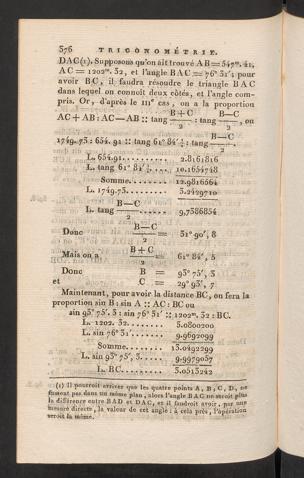 376 TRIGONOMÉTRIE.
DAC (1). Supposons qu'on ait trouvé AB = 547m. 41,
AC = 1202m. 32, et l'angle BAC = 76° 31'; pour
avoir BC, il faudra résoudre le triangle BAC
dans lequel on connoît deux côtés, et l'angle com-
pris. Or, d'après le IIIe cas, on a la proportion
AC + AB : AC — AB :: tang (B+C)/2 : tang (B—C)/2, ou
1749.73 : 654.91 :: tang 61° 84' ½ : tang (B—C)/2.
L. 654.91......... 2.8161816
L. tang 61° 84' ½.... 10.1654748
Somme...... 12.9816564
L. 1749.73........ 3.2429710
L. tang (B—C)/2 ........ 9,7386854
Donc (B—C)/2 = 31° 90', 8
Mais on a (B+C)/2 = 61° 84', 5
Donc B = 93° 75', 3
et C = 29° 93', 7
Maintenant, pour avoir la distance BC, on fera la
proportion sin B : sin A :: AC : BC ou
sin 93° 75', 3 : sin 76° 31' :: 1202m. 32 : BC.
L. 1202. 32........ 3.0800200
L. sin 76° 31'...... 9.9692099
Somme...... 13.0492299
L. sin 93° 75', 3.... 9.9979057
L. BC......... 3.0513242
(1) Il pourroit arriver que les quatre points A, B, C, D, ne
fussent pas dans un même plan, alors l'angle BAC ne seroit plus
la différence entre BAD et DAC, et il faudroit avoir, par une
mesure directe, la valeur de cet angle : à cela près, l'opération
seroit la même.